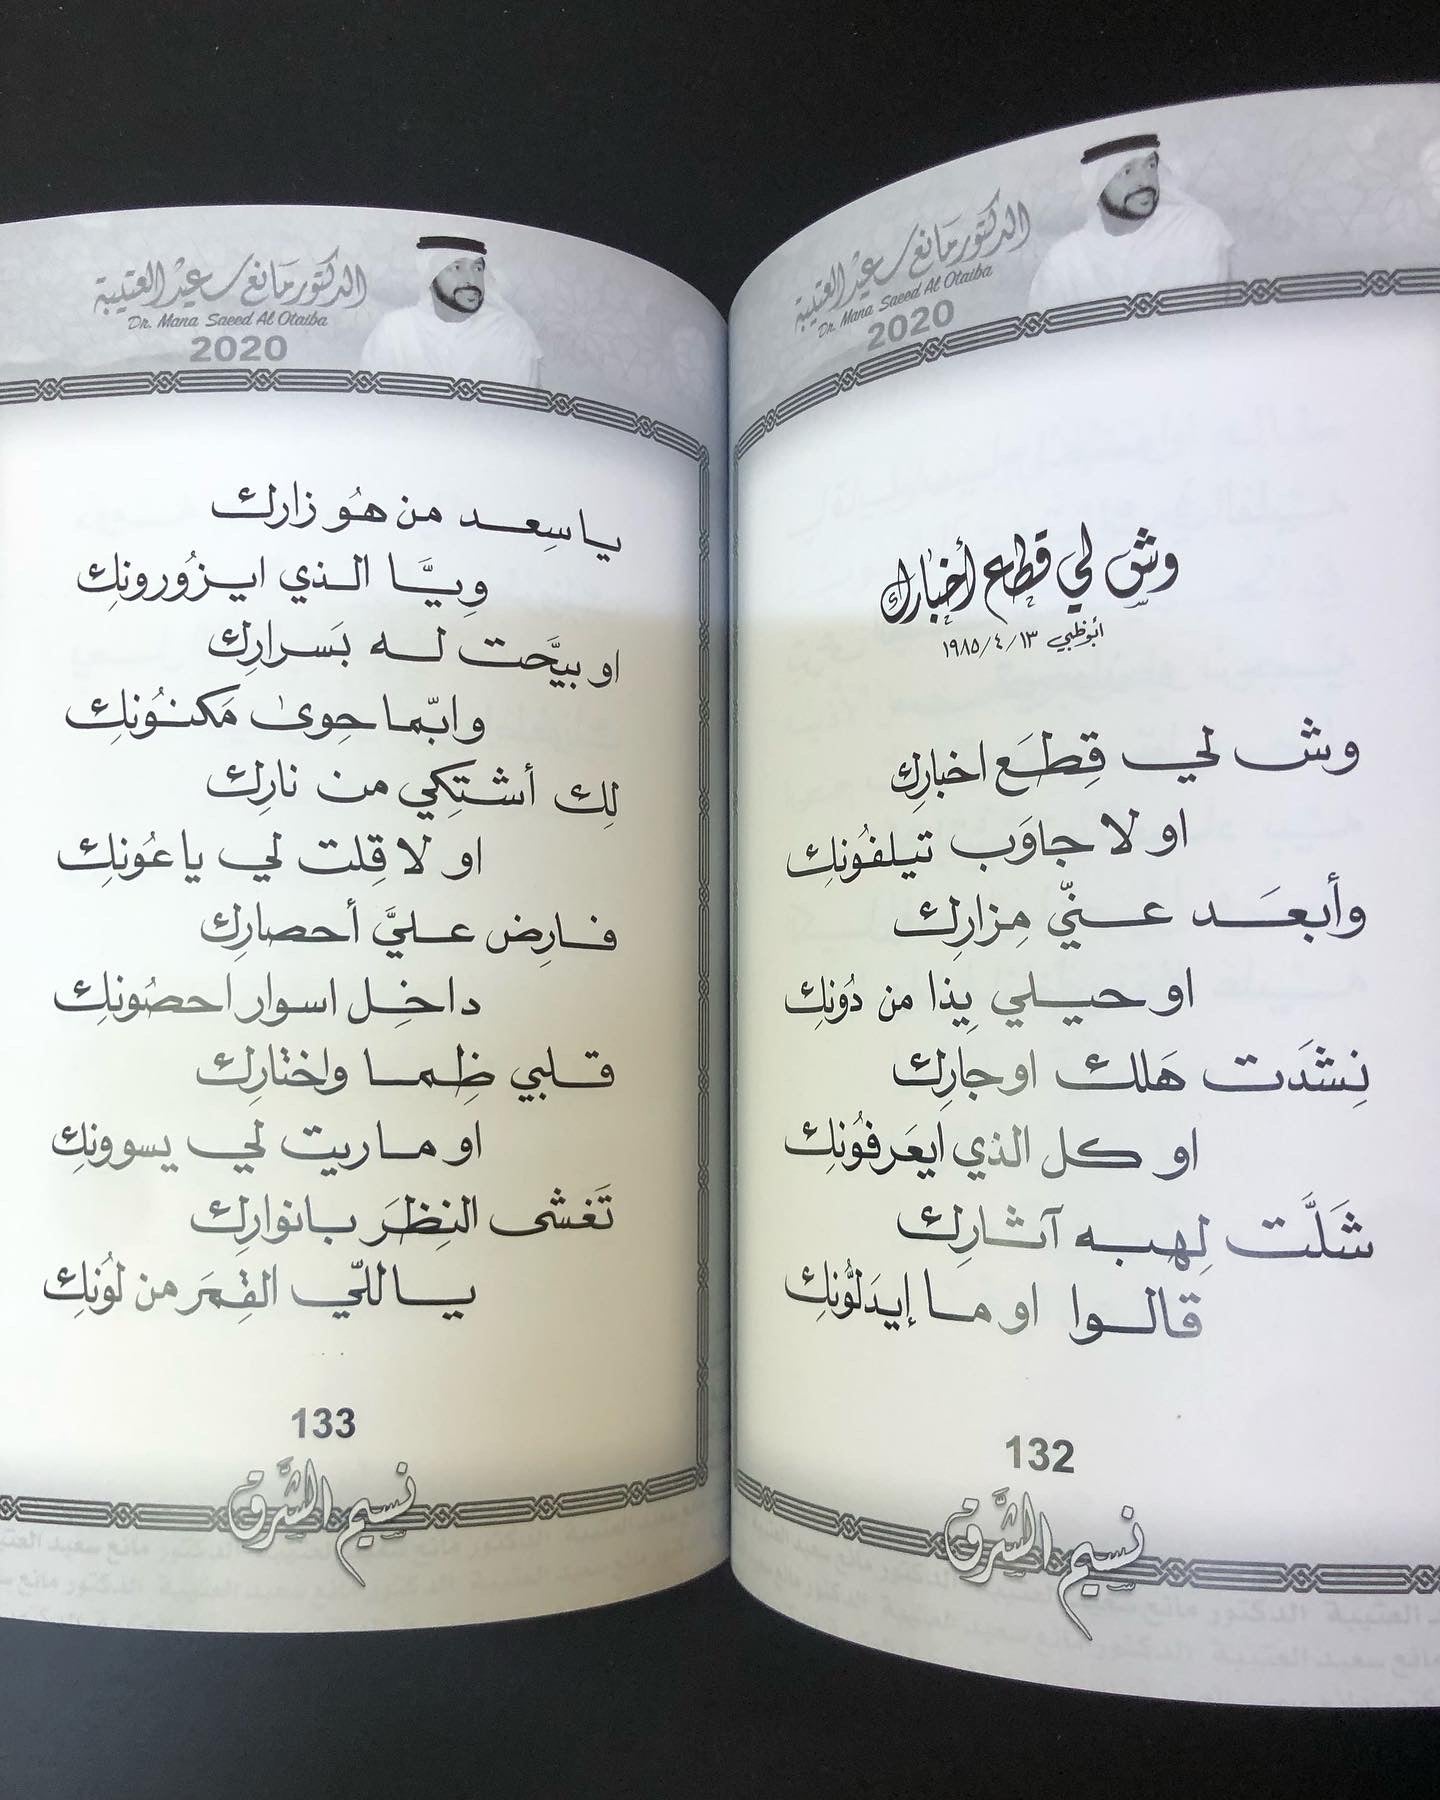 الدكتور مانع سعيد العتيبة
Dr. Mana Saeed Al Otaiba
2020
وش لي قطع أخبارك
أبوظبي ١٣/٤/١٩٨٥
وش لي قِطَع اخبارِك
او لا جاوَب تيلفُونِك
وأبعَد عنّي مِزارِك
او حيلي يِذا من دُونِك
نِشدَت هَلك اوجارِك
او كل الذي ايعَرفُونِك
شَلَّت لِهبه آثارِك
قالوا او ما إيدَلُّونِك
132
نسيم الشرق
الدكتور مانع سعيد العتيبة
Dr. Mana Saeed Al Otaiba
2020
يا سِعد من هُو زارك
وِيَّا الذي ايزُورونِك
او بيَّحت له بَسرارِك
وابّما حِوىٰ مَكنُونِك
لِك أشتِكي من نارِك
او لا قِلت لي يا عُونِك
فارِض عليَّ أحصارِك
داخِل اسوار احصُونِك
قلبي ظِما واختارِك
او ماريت لي يسوونِك
تَغشى النِظَر بانوارِك
ياللّي القِمَر من لُونِك
133
نسيم الشرق